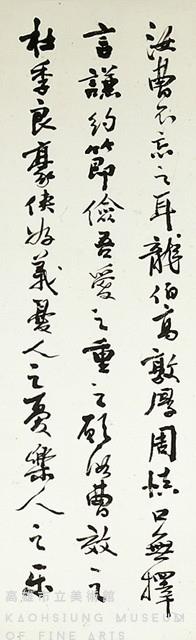 汝曹不忘之耳龍伯高敦厚周慎口無擇
言謙約節儉吾愛之重之願汝曹效之
杜季良豪俠好義憂人之憂樂人之樂
高雄市立美術館
KAOHSIUNG MUSEUM
OF FINE ARTS